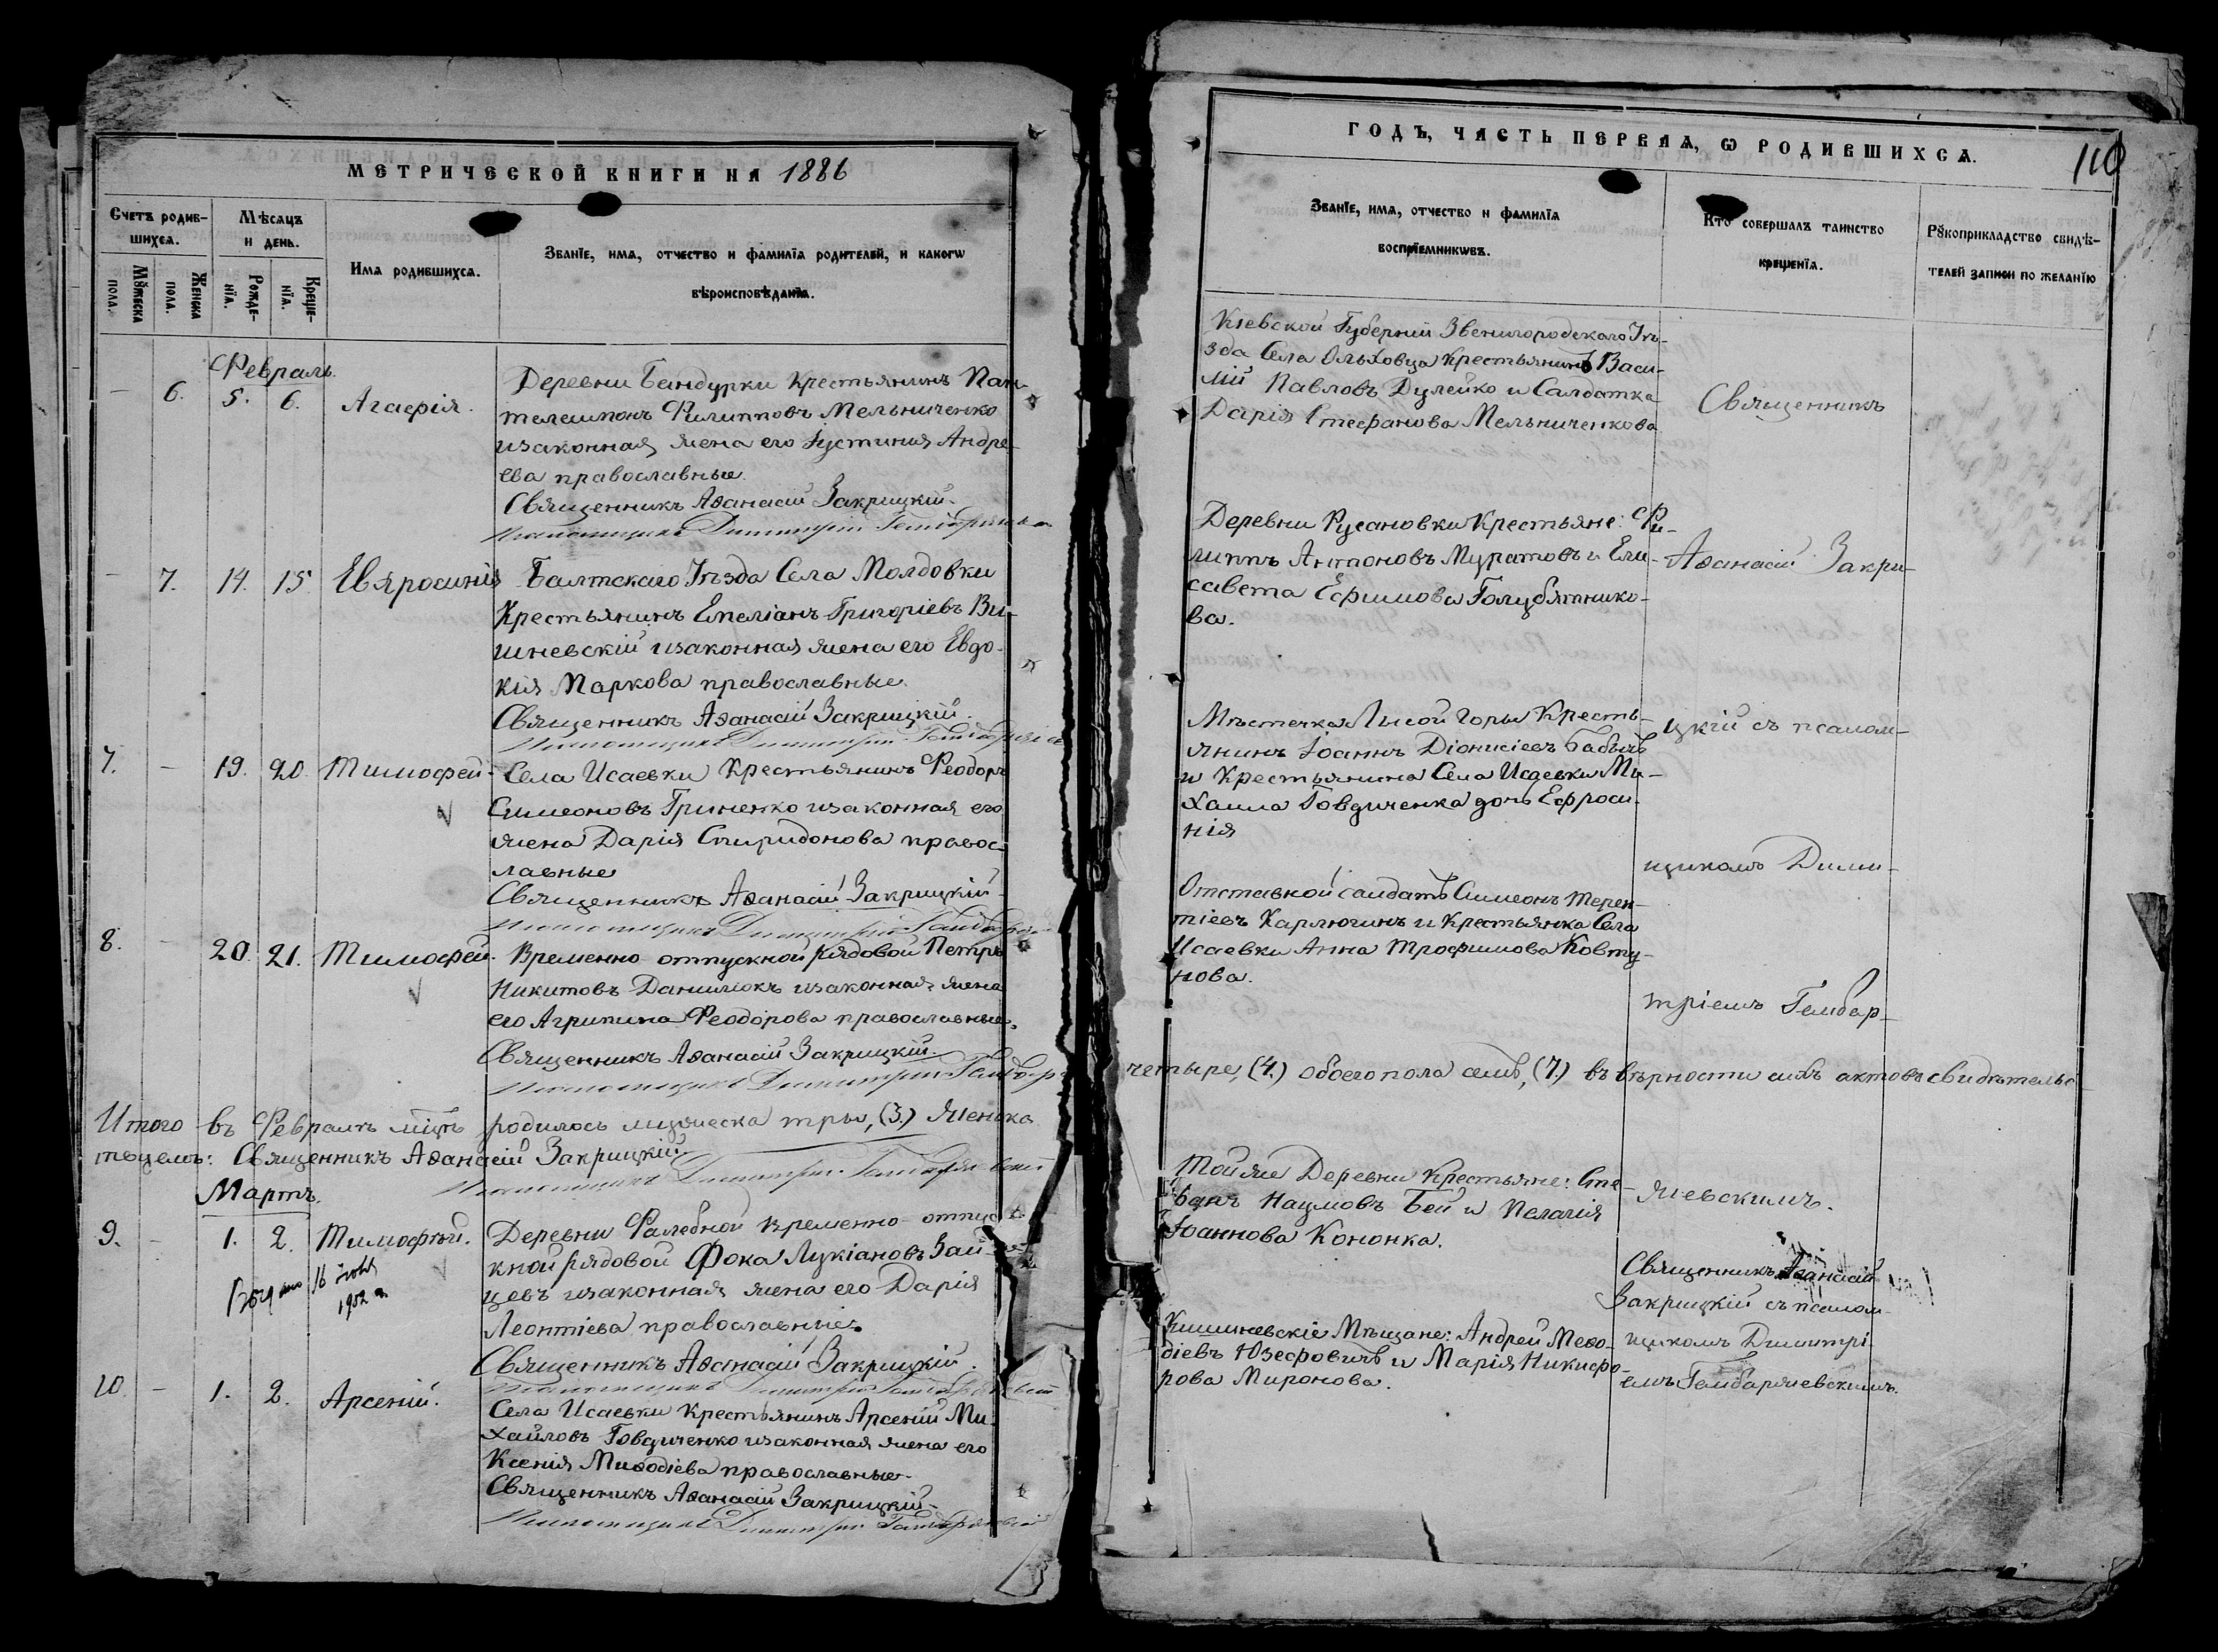 МЕТРИЧЕСКОЙ КНИГИ НА 1886
Счетъ родив-
шихся.
Мѣсяцъ
и день.
Мꙋжеска
пола.
Женска
пола.
Рожде-
нїя.
Креще-
нїя.
Имя родившихся.
Званїе, имя, отчество и фамилїя родителей, и какогѡ
вѣроисповѣданїя.
Февраль.
— 6. 5. 6. Агафія.
Деревни Бандурки крестьянинъ Пан-
телеимонъ Филипповъ Мельниченко
и законная жена его Іустинія Андре-
ева православные.
Священникъ Аѳанасій Закрицкій.
Псаломщикъ Димитрій
— 7. 14. 15. Евфросинія
Балтскаго Уѣзда Села Молдовки
Крестьянинъ Емеліанъ Григоріевъ Ви-
шневскій и законная жена его Евдо-
кія Маркова православные.
Священникъ Аѳанасій Закрицкій.
Псаломщикъ Димитрій
7. — 19. 20. Тимофей.
Села Исаевки Крестьянинъ Феодоръ
Симеоновъ Гриненко и законная его
жена Дарія Спиридонова правос-
лавные
Священникъ Аѳанасій Закрицкій
Псаломщикъ Димитрій
8. — 20. 21. Тимофей.
Временно отпускной рядовой Петръ
Никитовъ Данилюкъ и законная жена
его Агрипина Феодорова православные.
Священникъ Аѳанасій Закрицкій.
Псаломщикъ Димитрій
Итого въ Февралѣ м͠цѣ родилось мужеска три, (3.) Женска
тельцемъ: Священникъ Аѳанасій Закрицкій
Псаломщикъ Димитрій
Мартъ.
9. — 1. 2. Тимофѣй.
16
1952 г.
Деревни Фалебной временно-отпус-
кной рядовой Фока Лукіановъ Зай-
цевъ и законная жена его Дарія
Леонтіева православные.
Священникъ Аѳанасій Закрицкій.
Псаломщикъ Димитрій
10. — 1. 2. Арсеній.
Села Исаевки крестьянинъ Арсеній Ми-
хайловъ Говдиченко и законная жена его
Ксенія Миѳодіева православные.
Священникъ Аѳанасій Закрицкій.
Псаломщикъ Димитрій
ГОДЪ, ЧАСТЬ ПЕРВАЯ, Ѡ РОДИВШИХСЯ.
110
Званїе, имя, отчество и фамилїя
воспрїемникѡвъ.
Кто совершалъ таинство
крещенїя.
Рꙋкоприкладство свидѣ-
телей записи по желанїю
Кіевской Губерніи Звенигородскаго Уѣ-
зда Села Ольховца крестьянинъ Васи-
лій Павловъ Дулейко и Салдатка
Дарія Стефанова Мельниченкова
Священникъ
Деревни Русановки Крестьяне: Фи-
липпъ Антоновъ Муратовъ и Ели-
савета Ефимова Голубятнико-
ва.
Аѳанасій Закри-
Мѣстечка Лысой Горы Кресть-
янинъ Іоаннъ Діонисіевъ Бабычъ
и Крестьянина Села Исаевки Ми-
хаила Говдиченка дочь Ефроси-
нія
цкій съ псалом-
щикомъ Дими-
Отставной салдатъ Симеонъ Терен-
тіевъ Карлюгинъ и Крестьянка Села
Исаевки Анна Трофимова Ковту-
нова.
тріемъ Гембар-
четыре, (4.) обоего пола семь, (7.) въ вѣрности сихъ актовъ свидѣтельс-
Той же Деревни Крестьяне: Сте-
фанъ Наумовъ Бей и Пелагія
Іоаннова Кононка.
жевскимъ.
Священникъ Аѳанасій
Закрицкій съ псалом-
щикомъ Димитрі-
емъ Гембаржевскимъ.
Кишиневскіе Мѣщане: Андрей Меѳо-
діевъ Юзефовичъ и Марія Никифо-
рова Миронова.